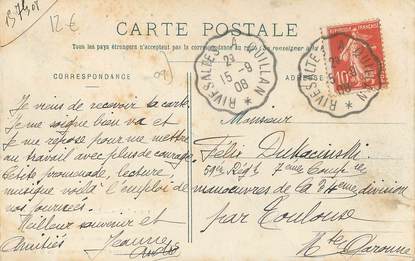 15/9/08
12 €
CARTE POSTALE
Tous les pays étrangers n'acceptent pas la correspondance au
CORRESPONDANCE
ADRESSE
RIVESALTES A QUILLAN
2e
15-9
08
RIVESALTES A QUILLAN
15-9
08
RÉPUBLIQUE FRANÇAISE
10
Je viens de recevoir ta carte.
Je me soigne bien va et
je me repose pour me mettre
au travail avec plus de courage.
promenade, lecture
musique voilà l'emploi de
nos journées.
Meilleur souvenir et
Amitiés Jeanne
Monsieur
Félix
7ème Comp ie
manoeuvres de la 34eme division
par Toulouse
Hte Garonne